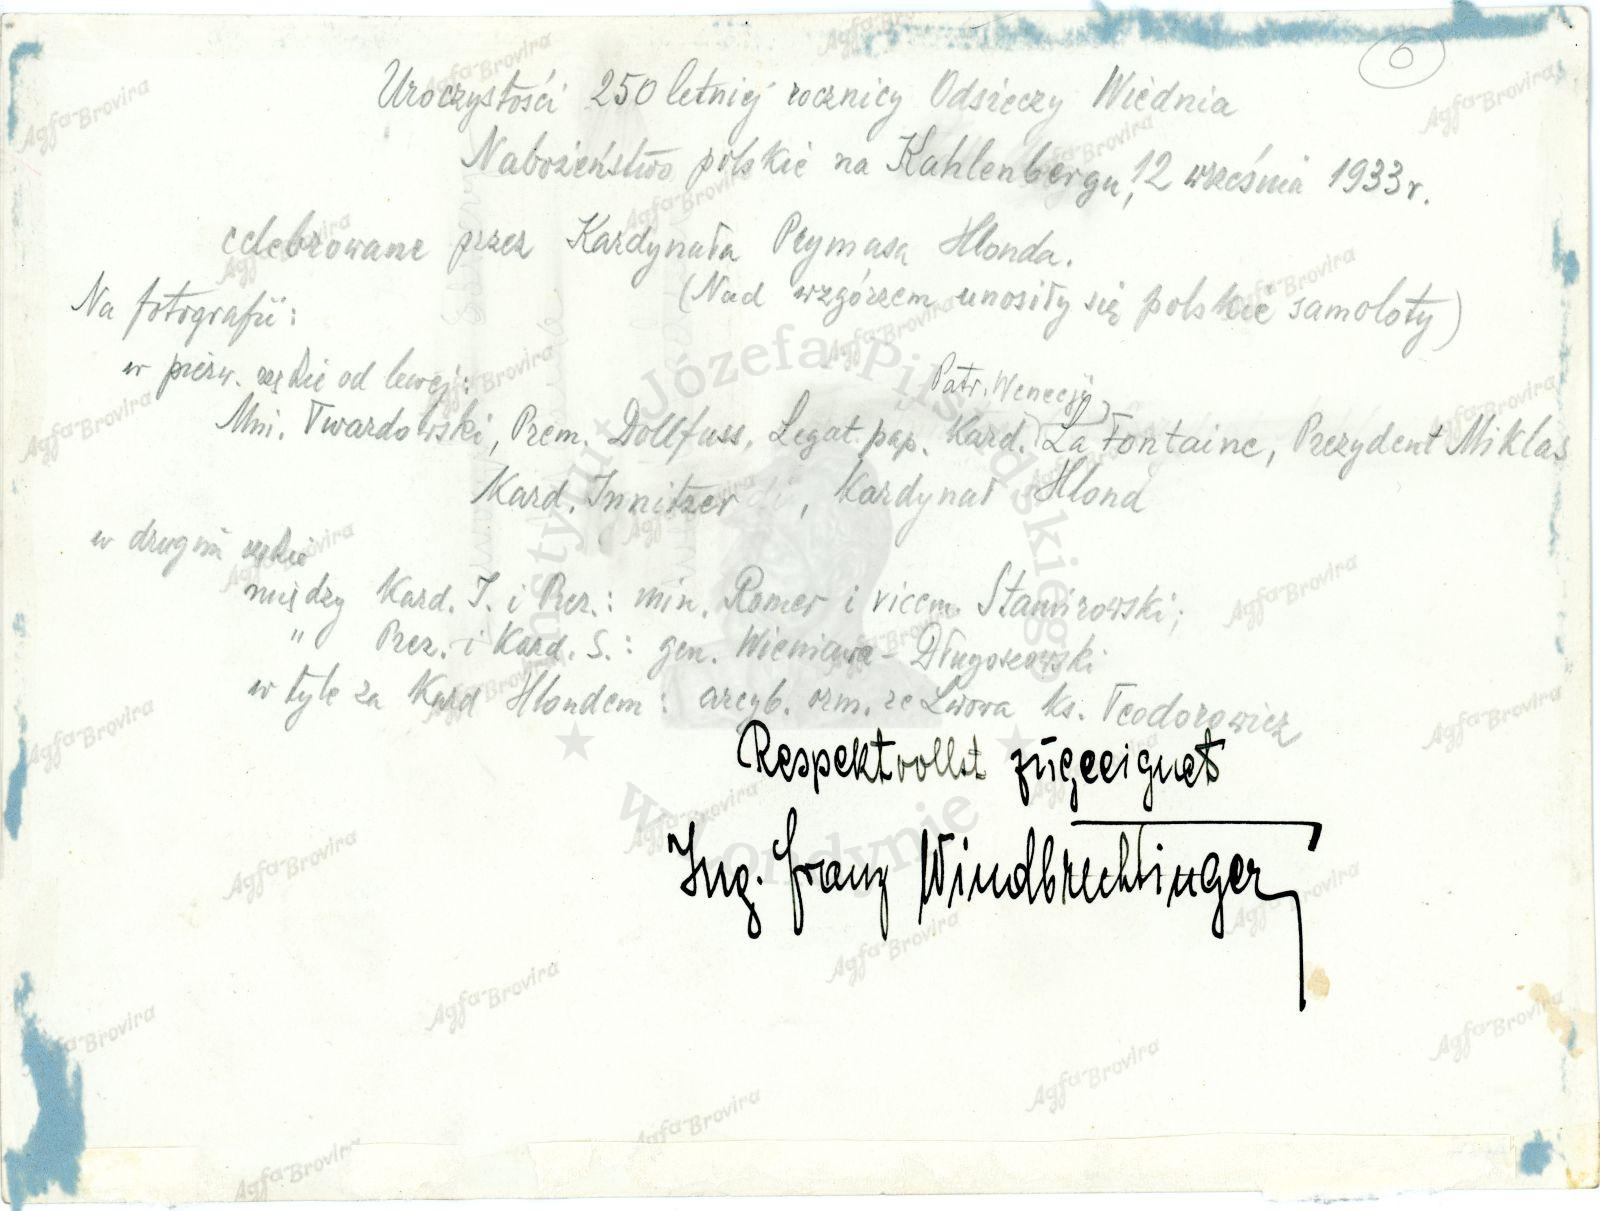 6
Uroczystości 250 letniej rocznicy Odsieczy Wiednia
Nabożeństwo polskie na Kahlenbergu, 12 września 1933 r.
celebrowane przez Kardynała Prymasa Hlonda.
(Nad wzgórzem unosiły się polskie samoloty)
Na fotografii:
w pierw. rzędzie od lewej:
Patr. Wenecji
Min. Twardowski, Prem. Dollfuss, Legat pap. Kard. (La Fontaine, Prezydent Miklas
Kard. Innitzer, Kardynał Hlond
w drugim rzędzie
między Kard. I. i Prez.: min. Romer i vicem. Stamirowski;
" Prez. i Kard. S.: gen. Wieniawa-Długoszowski
w tyle za Kard Hlondem: arcyb. orm. ze Lwowa ks. Teodorowicz
Respektvollst zugeeignet
Ing. Franz Windbrechtinger
Instytut Józefa Piłsudskiego
w Londynie
Agfa-Brovira